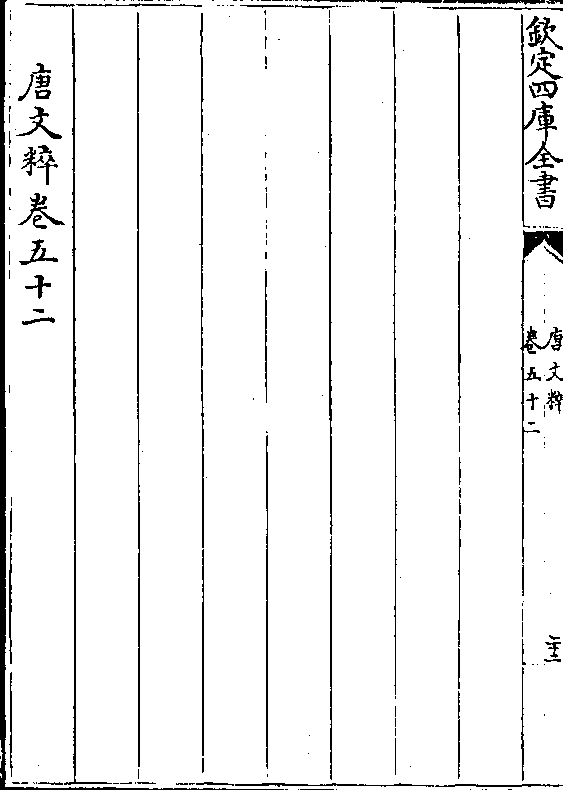 欽定四庫全書
唐文粹
卷五十二
唐文粹卷五十二